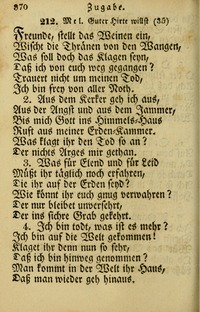 370 Zugabe.
212. Mel. Guter Hirte willst (35)
Freunde, stellt das Weinen ein,
Wischt die Thränen von den Wangen,
Was soll doch das Klagen seyn,
Daß ich von euch weg gegangen?
Trauert nicht um meinen Tod,
Ich bin frey von aller Noth.
2. Aus dem Kerker geh ich aus,
Aus der Angst und aus dem Jammer,
Bis mich Gott ins Himmels-Haus
Ruft aus meiner Erden-Kammer.
Was klagt ihr den Tod so an?
Der nichts Arges mir gethan.
3. Was für Elend und für Leid
Müßt ihr täglich noch erfahren,
Die ihr auf der Erden seyd?
Wie könnt ihr euch gnug verwahren?
Der nur bleibet unversehrt,
Der ins sichre Grab gekehrt.
4. Ich bin todt, was ist es mehr?
Ich bin auf die Welt gekommen!
Klaget ihr denn nun so sehr,
Daß ich bin hinweg genommen?
Man kommt in der Welt ihr Haus,
Daß man wieder geh hinaus.